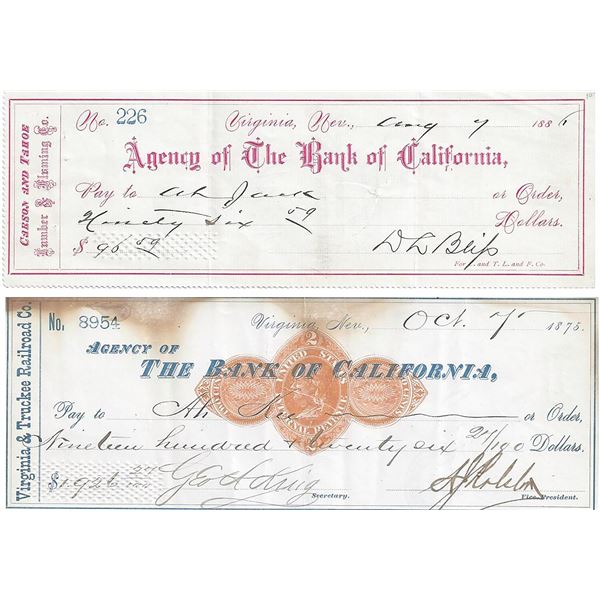 CARSON AND TAHOE
Lumber & Fluming Co.
No. 226 Virginia, Nev., Aug 7 1886
Agency of The Bank of California,
Pay to Ah Jack or Order,
Ninety six 59 Dollars.
$ 96 59 D L Bliss
For C. and T. L. and F. Co.
Virginia & Truckee Railroad Co.
No. 8954 Virginia, Nev., Oct. 7 1875.
AGENCY OF
THE BANK OF CALIFORNIA,
UNITED STATES
INTERNAL REVENUE
2
Pay to Ah Kee or Order,
Nineteen hundred & twenty six 27/100 Dollars.
$1,926 27/100 Geo H King
Secretary. Vice-President.